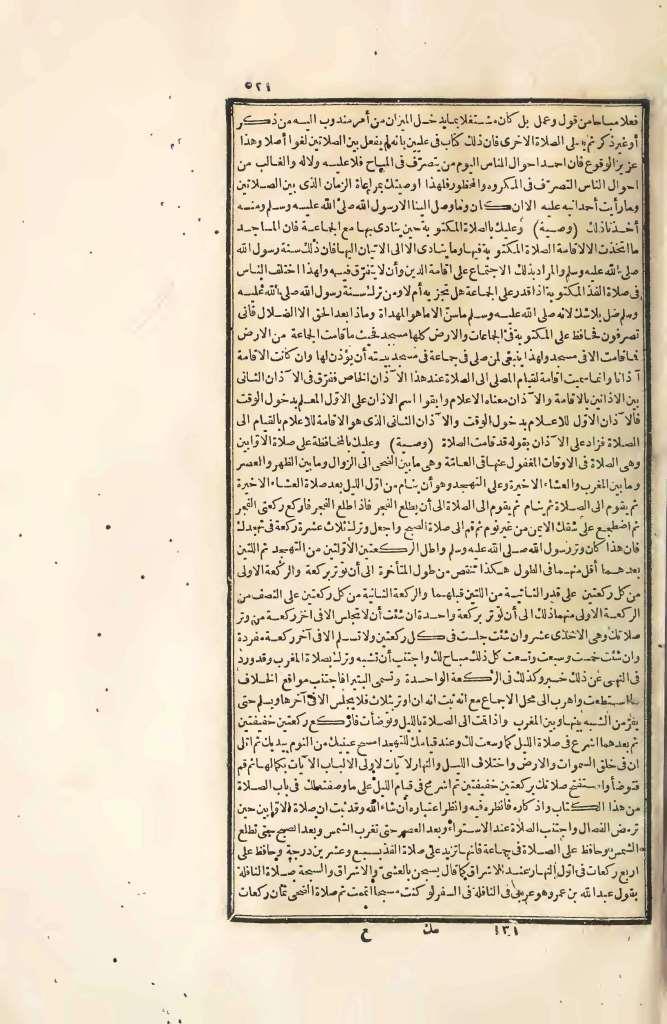 ٥٢١
فعلا مباحا من قول وعمل بل كان مشتغلا بما يدخل الميزان من أمر مندوب اليه من ذكر
أو غير ذكر ثم يأتى الصلاة الاخرى فان ذلك كتاب فى عليين يانه لم يفعل بين الصلاتين لغوا أصلا وهذا
عزيز الوقوع فان أحمد احوال الناس اليوم من يتصرف فى المباح فلا عليه ولا له والغالب من
احوال الناس التصرف فى المكروه والمحظور فلهذا اوصيتك بمراعاة الزمان الذى بين الصلاتين
وما رأيت أحدا نبه عليه الا ان كان وما وصل الينا الا رسول الله صلى الله عليه وسلم ومنه
أخذنا ذلك (وصية) وعليك بالصلاة المكتوبة حين ينادى بها مع الجماعة فان المساجد
ما اتخذت الا لاقامة الصلاة المكتوبة فيها وما ينادى الا الى الاتيان اليها فان ذلك سنة رسول الله
صلى الله عليه وسلم والمراد بذلك الاجتماع على اقامة الدين وأن لا يتفرق فيه ولهذا اختلف الناس
فى صلاة الفذ المكتوبة اذا قدر على الجماعة هل تجزيه أم لا ومن ترك سنة رسول الله صلى الله عليه
وسلم ضل بلا شك لانه صلى الله عليه وسلم ما سن الا ما هو المهداة وماذا بعد الحق الا الضلال فأنى
تصرفون فحافظ على المكتوبة فى الجماعات والارض كلها مسجد فحيث ما قامت الجماعة من الارض
فما قامت الا فى مسجد ولهذا ينبغى لمن صلى فى جماعة فى مسجد بيته أن يؤذن لها وان كانت الاقامة
آذانا وانما سميت اقامة لقيام المصلى الى الصلاة عند هذا الآذان الخاص ففرق فى الآذان الثانى
بين الاذانين بالاقامة والآذان معناه الاعلام وابقوا اسم الاذان على الاول المعلم بدخول الوقت
فالآذان الاول للاعلام بدخول الوقت والآذان الثانى الذى هو الاقامة للاعلام بالقيام الى
الصلاة فزاد على الآذان بقوله قد قامت الصلاة (وصية) وعليك بالمحافظة على صلاة الاوابين
وهى الصلاة فى الاوقات المغفول عنها فى العامة وهى ما بين الضحى الى الزوال وما بين الظهر والعصر
وما بين المغرب والعشاء الاخيرة وعلى التهجد وهو أن ينام من اول الليل بعد صلاة العشاء الاخيرة
ثم يقوم الى الصلاة ثم ينام ثم يقوم الى الصلاة الى أن يطلع الفجر فاذا طلع الفجر فاركع ركعتى الفجر
ثم اضطجع على شقك الايمن من غير نوم ثم قم الى صلاة الصبح واجعل وترك ثلاث عشرة ركعة فى تهجدك
فان هذا كان وتر رسول الله صلى الله عليه وسلم واطل الركعتين الأولتين من التهجد ثم اللتين
بعدهما أقل منهما فى الطول هكذا تنتقص من طول المتأخرة الى أن توتر بركعة والركعة الاولى
من كل ركعتين على قدر الثانية من اللتين قبلهما والركعة الثانية من كل ركعتين على النصف من
الركعة الاولى منهما ذلك الى أن توتر بركعة واحدة ان شئت أن لا تجلس الا فى اخر ركعة من وتر
صلاتك وهى الاحدى عشر وان شئت جلست فى كل ركعتين ولا تسلم الا فى آخر ركعة مفردة
وان شئت خمست وسبعت وتسعت كل ذلك مباح لك واجتنب أن تشبه وترك بصلاة المغرب وقد ورد
فى النهى عن ذلك خبر وكذلك فى الركعة الواحدة وتسمى البتيرا فاجتنب مواقع الخلاف
ما استطعت واهرب الى محل الاجماع مع انه ثبت انه ان اوتر بثلاث فلا يجلس الا فى آخرها ويسلم حتى
يفرق من الشبه بينها وبين المغرب واذا قمت الى الصلاة بالليل وتوضأت فاركع ركعتين خفيفتين
ثم بعدهما اشرع فى صلاة الليل كما رسمت لك وعند قيامك للتهجد امسح عينيك من النوم بيديك ثم اتل
ان فى خلق السموات والارض واختلاف الليل والنهار لآيات لاولى الالباب الآيات بكمالها ثم قم
فتوضأ واستفتح صلاتك بركعتين خفيفتين ثم اشرع فى قيام الليل على ما وصفته لك فى باب الصلاة
من هذا الكتاب واذكاره فانظره فيه وانظر اعتباره أن شاء الله وقد ثبت ان صلاة الاوابين حين
ترمض الفصال واجتنب الصلاة عند الاستواء وبعد العصر حتى تغرب الشمس وبعد الصبح حتى تطلع
الشمس وحافظ على الصلاة فى جماعة فانها تزيد على صلاة الفذ بسبع وعشرين درجة وحافظ على
اربع ركعات فى اول النهار عند الاشراق كما قال يسبحن بالعشى والاشراق والسبحة صلاة النافلة
يقول عبد الله بن عمر وهو عربى فى النافلة فى السفر لو كنت مسبحا اتممت ثم صلاة الضحى ثمان ركعات
١٣١ مك ع